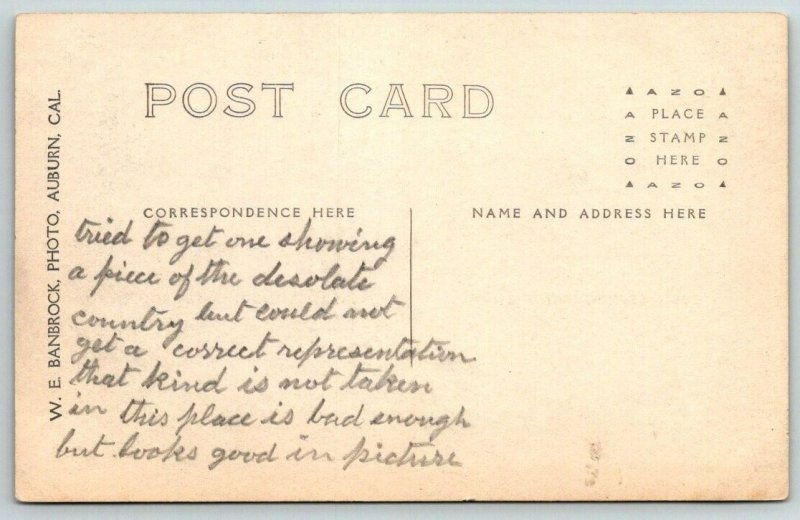 POST CARD
▲ A Z O ▲
A PLACE A
Z STAMP Z
O HERE O
▲ A Z O ▲
W. E. BANBROCK, PHOTO, AUBURN, CAL.
CORRESPONDENCE HERE
NAME AND ADDRESS HERE
tried to get one showing
a piece of the desolate
country but could not
get a correct representation
that kind is not taken
in this place is bad enough
but looks good in picture